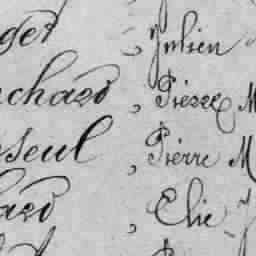 ger, Julien
chard, Pierre M
seul, Pierre M
ard, Elie J